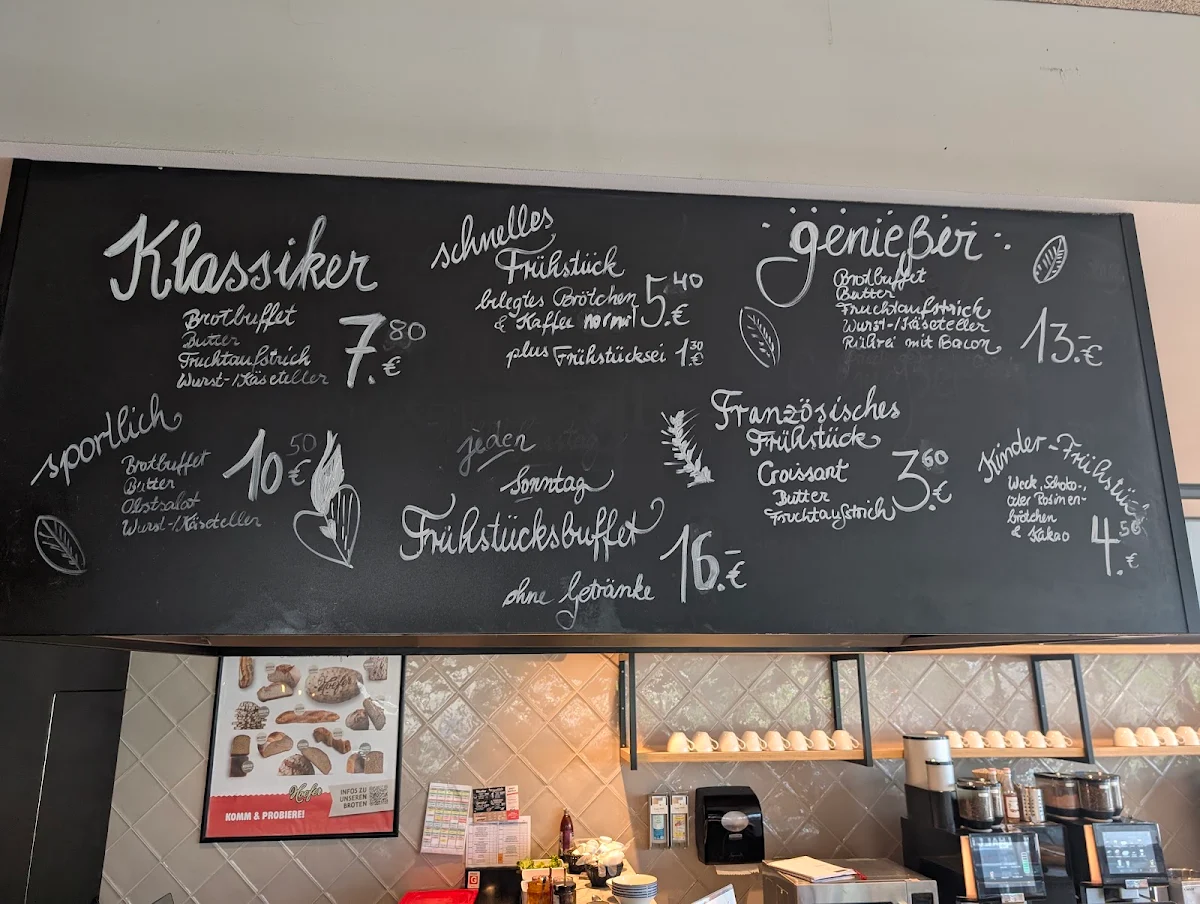 Klassiker
Brotbuffet
Butter
Fruchtaufstrich
Wurst-/Käseteller
7.80 €
schnelles
Frühstück
belegtes Brötchen
& Kaffee normal
5.40 €
plus Frühstücksei 1.30 €
genießer
Brotbuffet
Butter
Fruchtaufstrich
Wurst-/Käseteller
Rührei mit Bacon
13.- €
sportlich
Brotbuffet
Butter
Obstsalat
Wurst-/Käseteller
10.50 €
jeden
Sonntag
Frühstücksbuffet
ohne Getränke
16.- €
Französisches
Frühstück
Croissant
Butter
Fruchtaufstrich
3.60 €
Kinder-Frühstück
Weck, Schoko-,
oder Rosinen-
brötchen
& Kakao
4.50 €
Hoefer
KOMM & PROBIERE!
INFOS ZU
UNSEREN
BROTEN